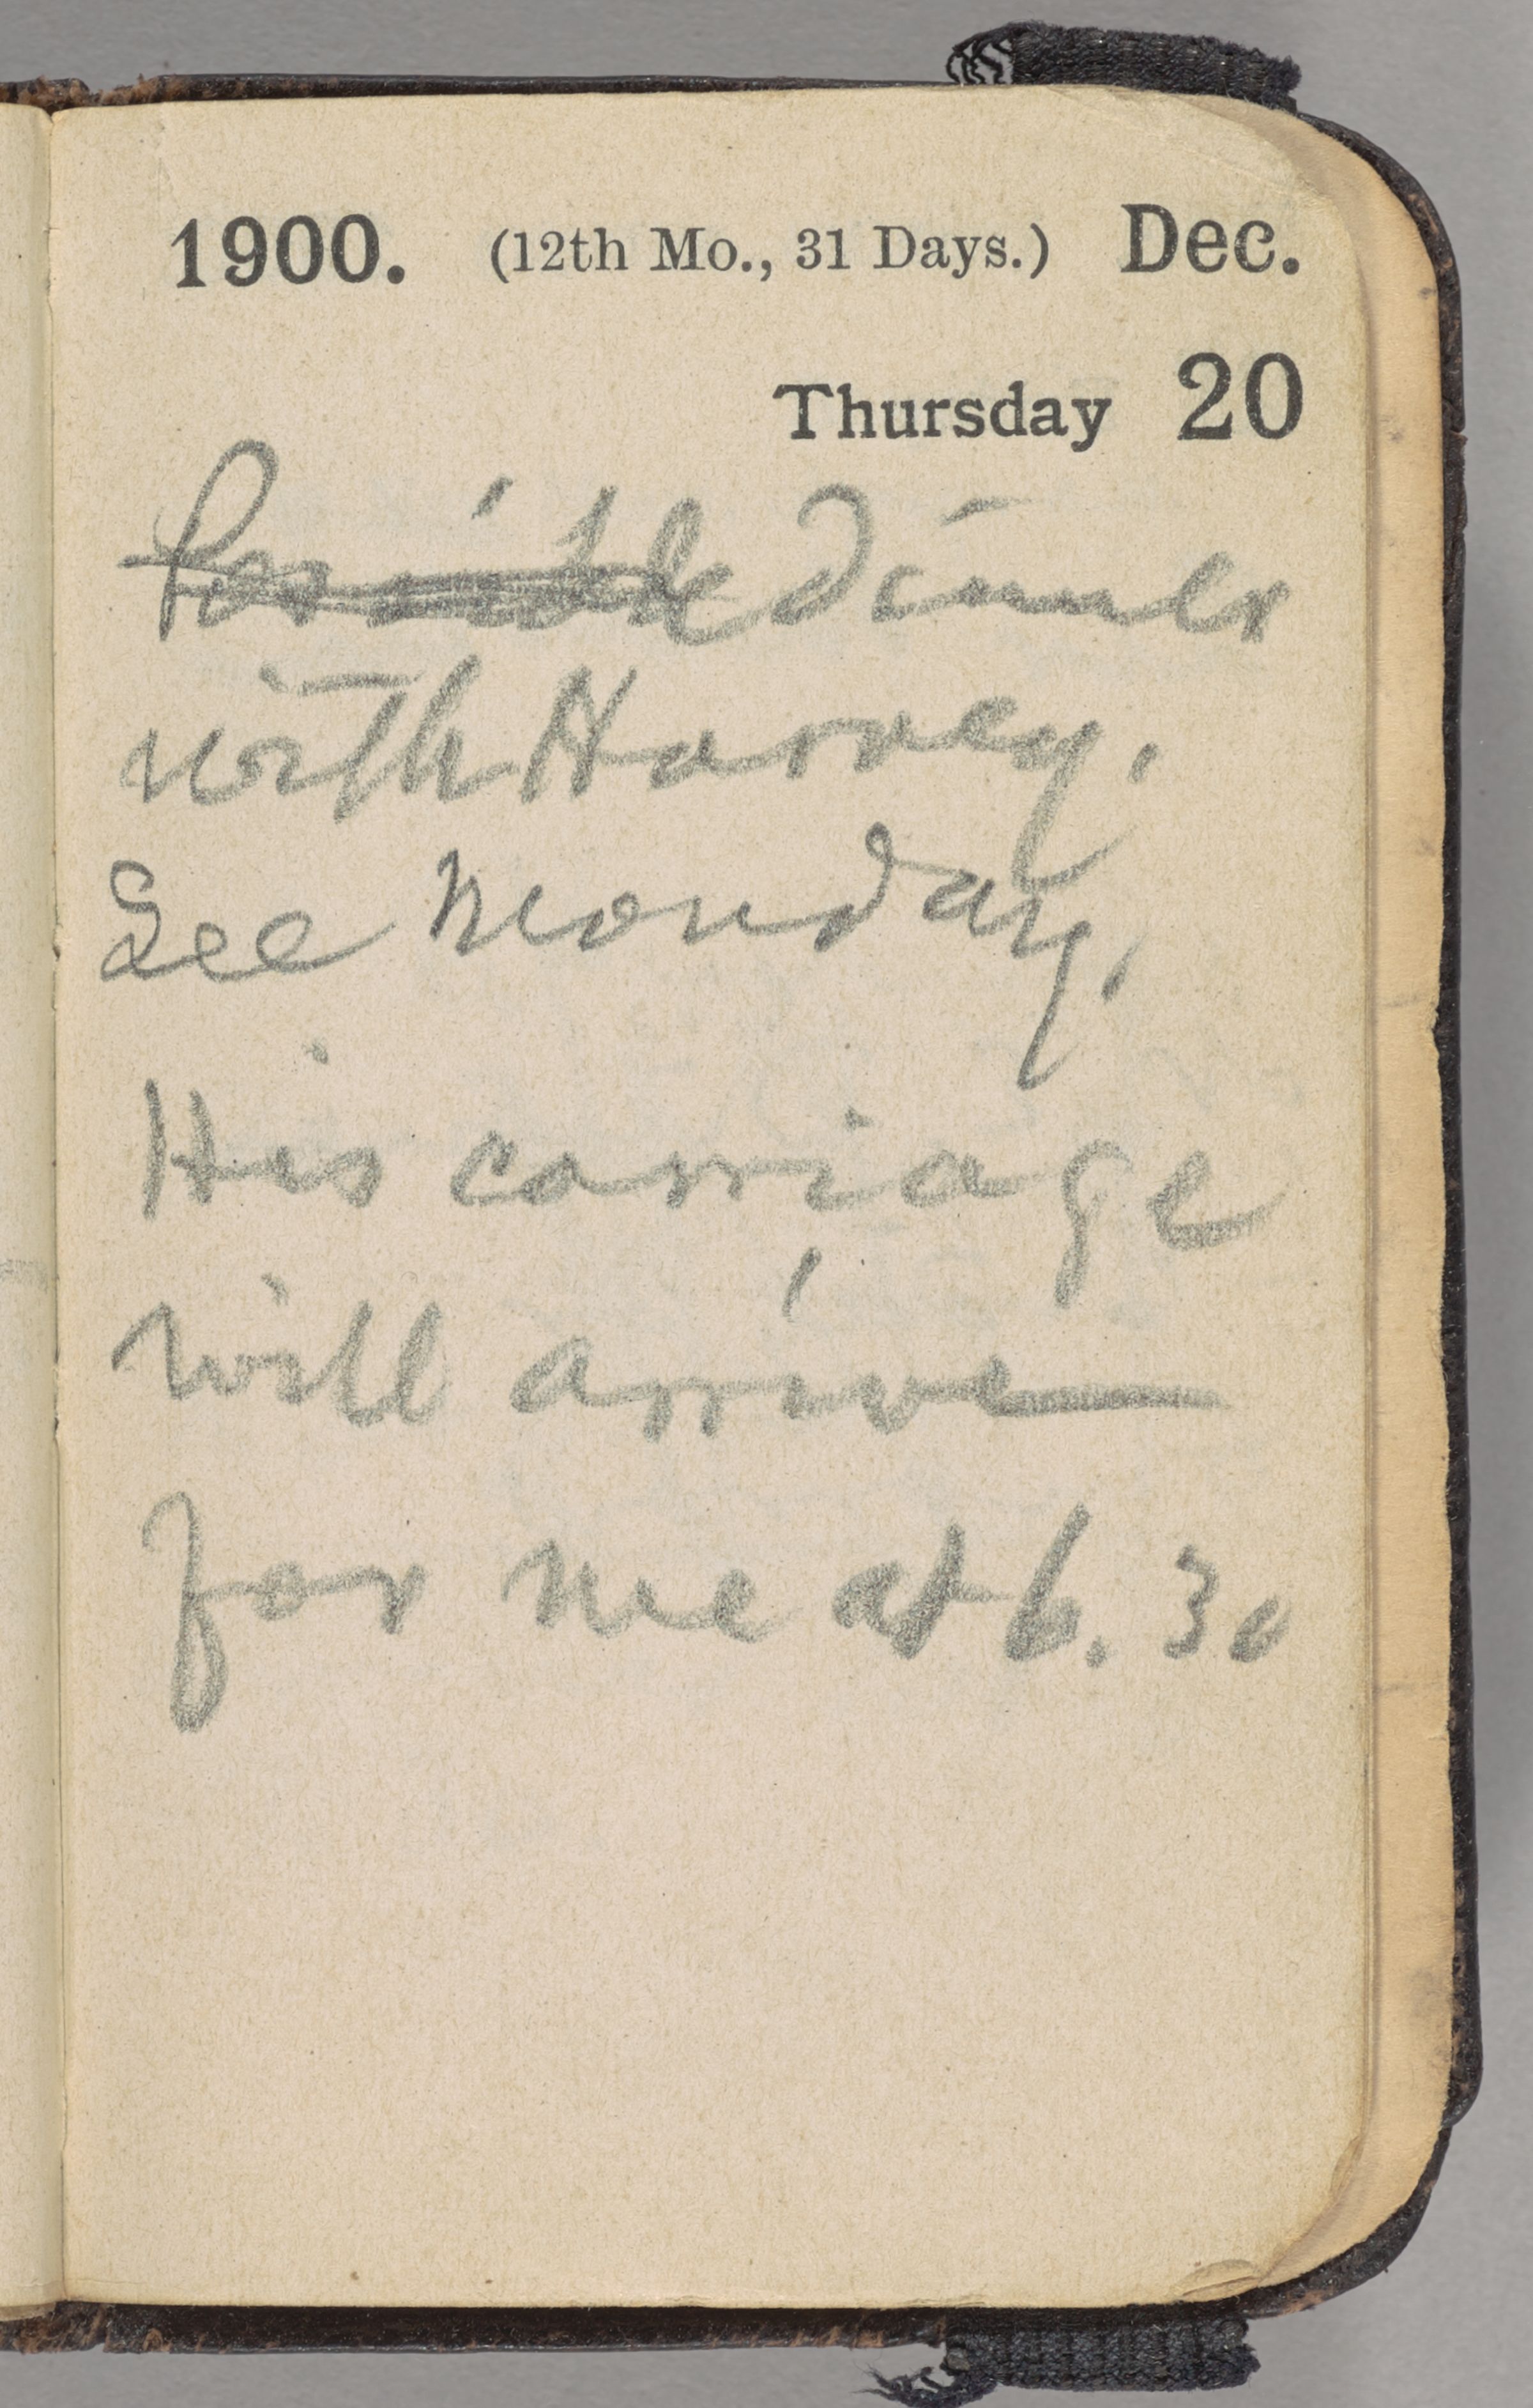 1900. (12th Mo., 31 Days.) Dec.
Thursday 20
Possible Dinner
with Harvey.
See Monday.
His carriage
will arrive
for me at 6.30